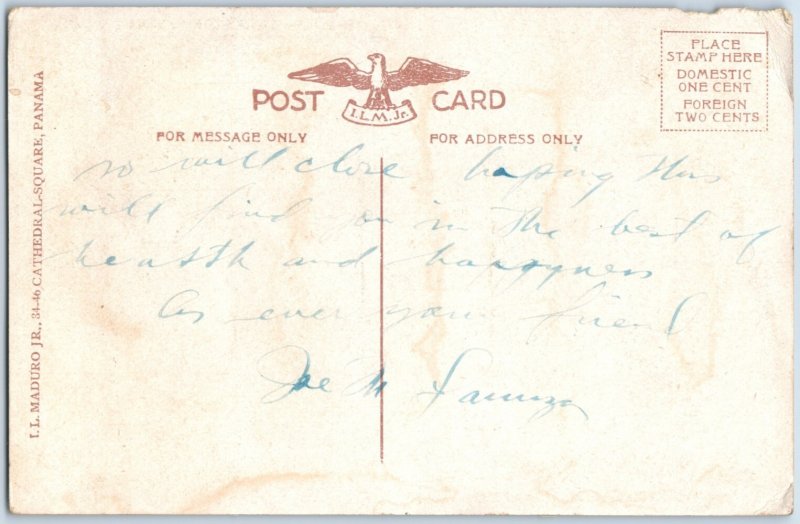 PLACE
STAMP HERE
DOMESTIC
ONE CENT
FOREIGN
TWO CENTS
POST CARD
I.L.M. Jr.
FOR MESSAGE ONLY
FOR ADDRESS ONLY
I.L. MADURO JR., 34-46 CATHEDRAL-SQUARE, PANAMA
so will close hoping this
will find you in the best of
health and happyness
As ever your friend
Joe M